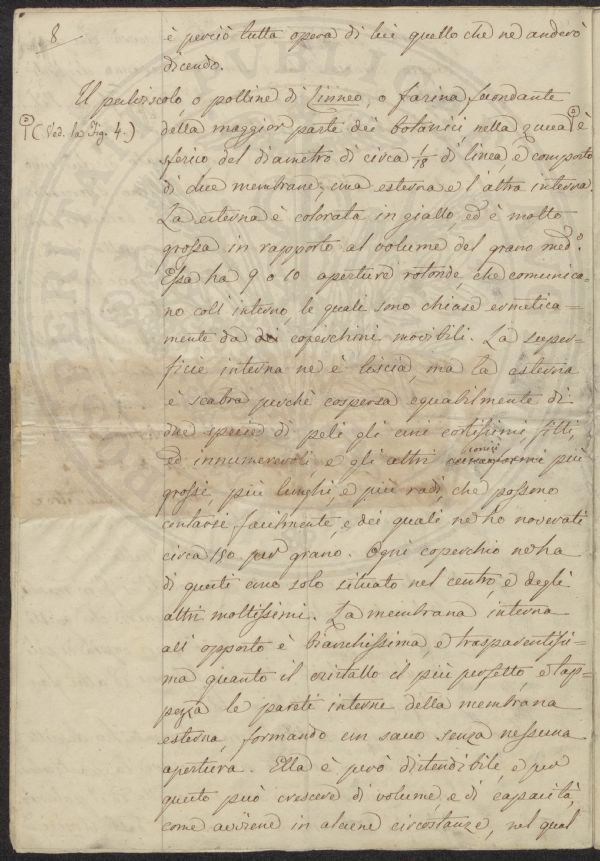 8
è perciò tutta opera di lui quello che ne anderò
dicendo.
Il pulviscolo, o polline di Linneo, o farina fecondante
(Ved. la Fig. 4.)
della maggior parte dei botanici nella zucca è
sferico del diametro di circa 1/18 di linea, è composto
di due membrane, una esterna e l'altra interna.
La esterna è colorata in giallo, ed è molto
grossa in rapporto al volume del grano medº.
Essa ha 9 o 10 aperture rotonde, che comunica-
no coll'interno, le quali sono chiase ermetica=
mente da dei coperchini movibili. La super-
ficie interna ne è liscia, ma la esterna
è scabra perchè cospersa egualmente di
due specie di peli gli uni cortissimi fitti,
ed innumerevoli e gli altri conici più
grossi più lunghi, e più radi, che possono
contarsi facilmente, e dei quali ne ho noverati
circa 180 per grano. Ogni coperchio ne ha
di questi uno solo situato nel centro, e degli
altri moltissimi. La membrana interna
all'opposto è bianchissima, e trasparentissi-
ma quanto il cristallo il più perfetto, e tap-
pezza le pareti interne della membrana
esterna, formando un sacco senza nessuna
apertura. Ella è però distendibile, e per
questo può crescere di volume, e di capacità,
come avviene in alcune circostanze, nel qual